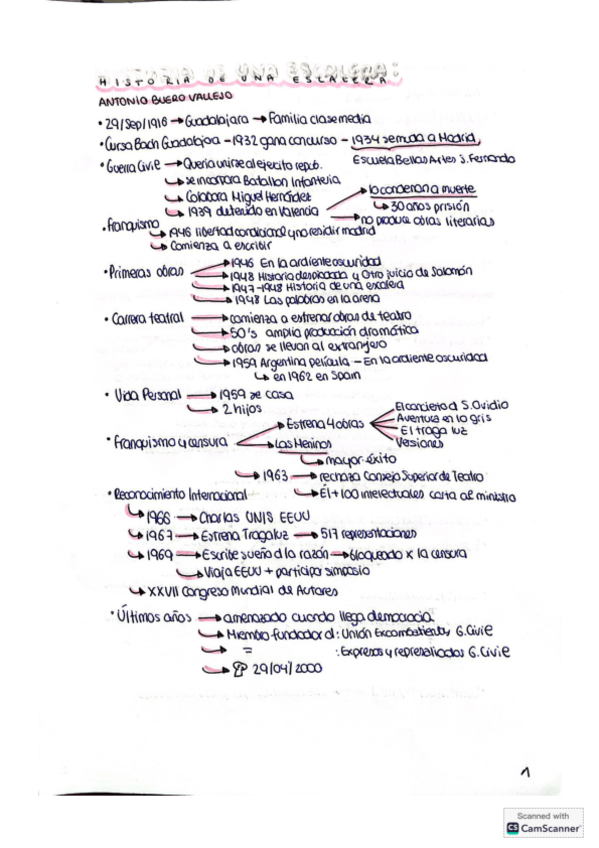 HISTORIA DE UNA ESCALERA:
ANTONIO BUERO VALLEJO
• 29/Sep/1916 → Guadalajara → Familia clase media
• Cursa Bach Guadalajara – 1932 gana concurso – 1934 se muda a Madrid
Escuela Bellas Artes S. Fernando
• Guerra Civil → Quería unirse al ejercito repub.
↳ se incorpora Batallon Infanteria
↳ Colabora Miguel Hernández
↳ 1939 detenido en Valencia → lo condenan a muerte
↳ 30 años prisión
→ no produce obras literarias
• Franquismo
↳ 1946 libertad condicional y no residir madrid
↳ Comienza a escribir
• Primeras obras → 1946 En la ardiente oscuridad
→ 1948 Historia despiadada y Otro juicio de Salomón
→ 1947-1948 Historia de una escalera
→ 1948 Las palabras en la arena
• Carrera teatral → comienza a estrenar obras de teatro
↳ 50's amplia producción dramática
↳ obras se llevan al extranjero
↳ 1959 Argentina película – En la ardiente oscuridad
↳ en 1962 en Spain
• Vida Personal → 1959 se casa
↳ 2 hijos
• Franquismo y censura → Estrena 4 obras → El concierto d S. Ovidio
→ Aventura en lo gris
→ El traga luz
→ Versiones
→ Las Meninas
↳ mayor éxito
↳ 1963 → rechaza Consejo Superior de Teatro
↳ Él + 100 intelectuales carta al ministro
• Reconocimiento Internacional
↳ 1966 → Charlas UNIS EEUU
↳ 1967 → Estrena Tragaluz → 517 representaciones
↳ 1969 → Escribe sueño d la razón → bloqueado x la censura
↳ Viaja EEUU + participa simposio
↳ XXVII Congreso Mundial de Autores
• Últimos años → amenazado cuando llega democracia
↳ Miembro fundador d: Unión G. Civil
↳ = : Expresos y represaliados G. Civil
↳ 29/04/2000
1
Scanned with
CS CamScanner